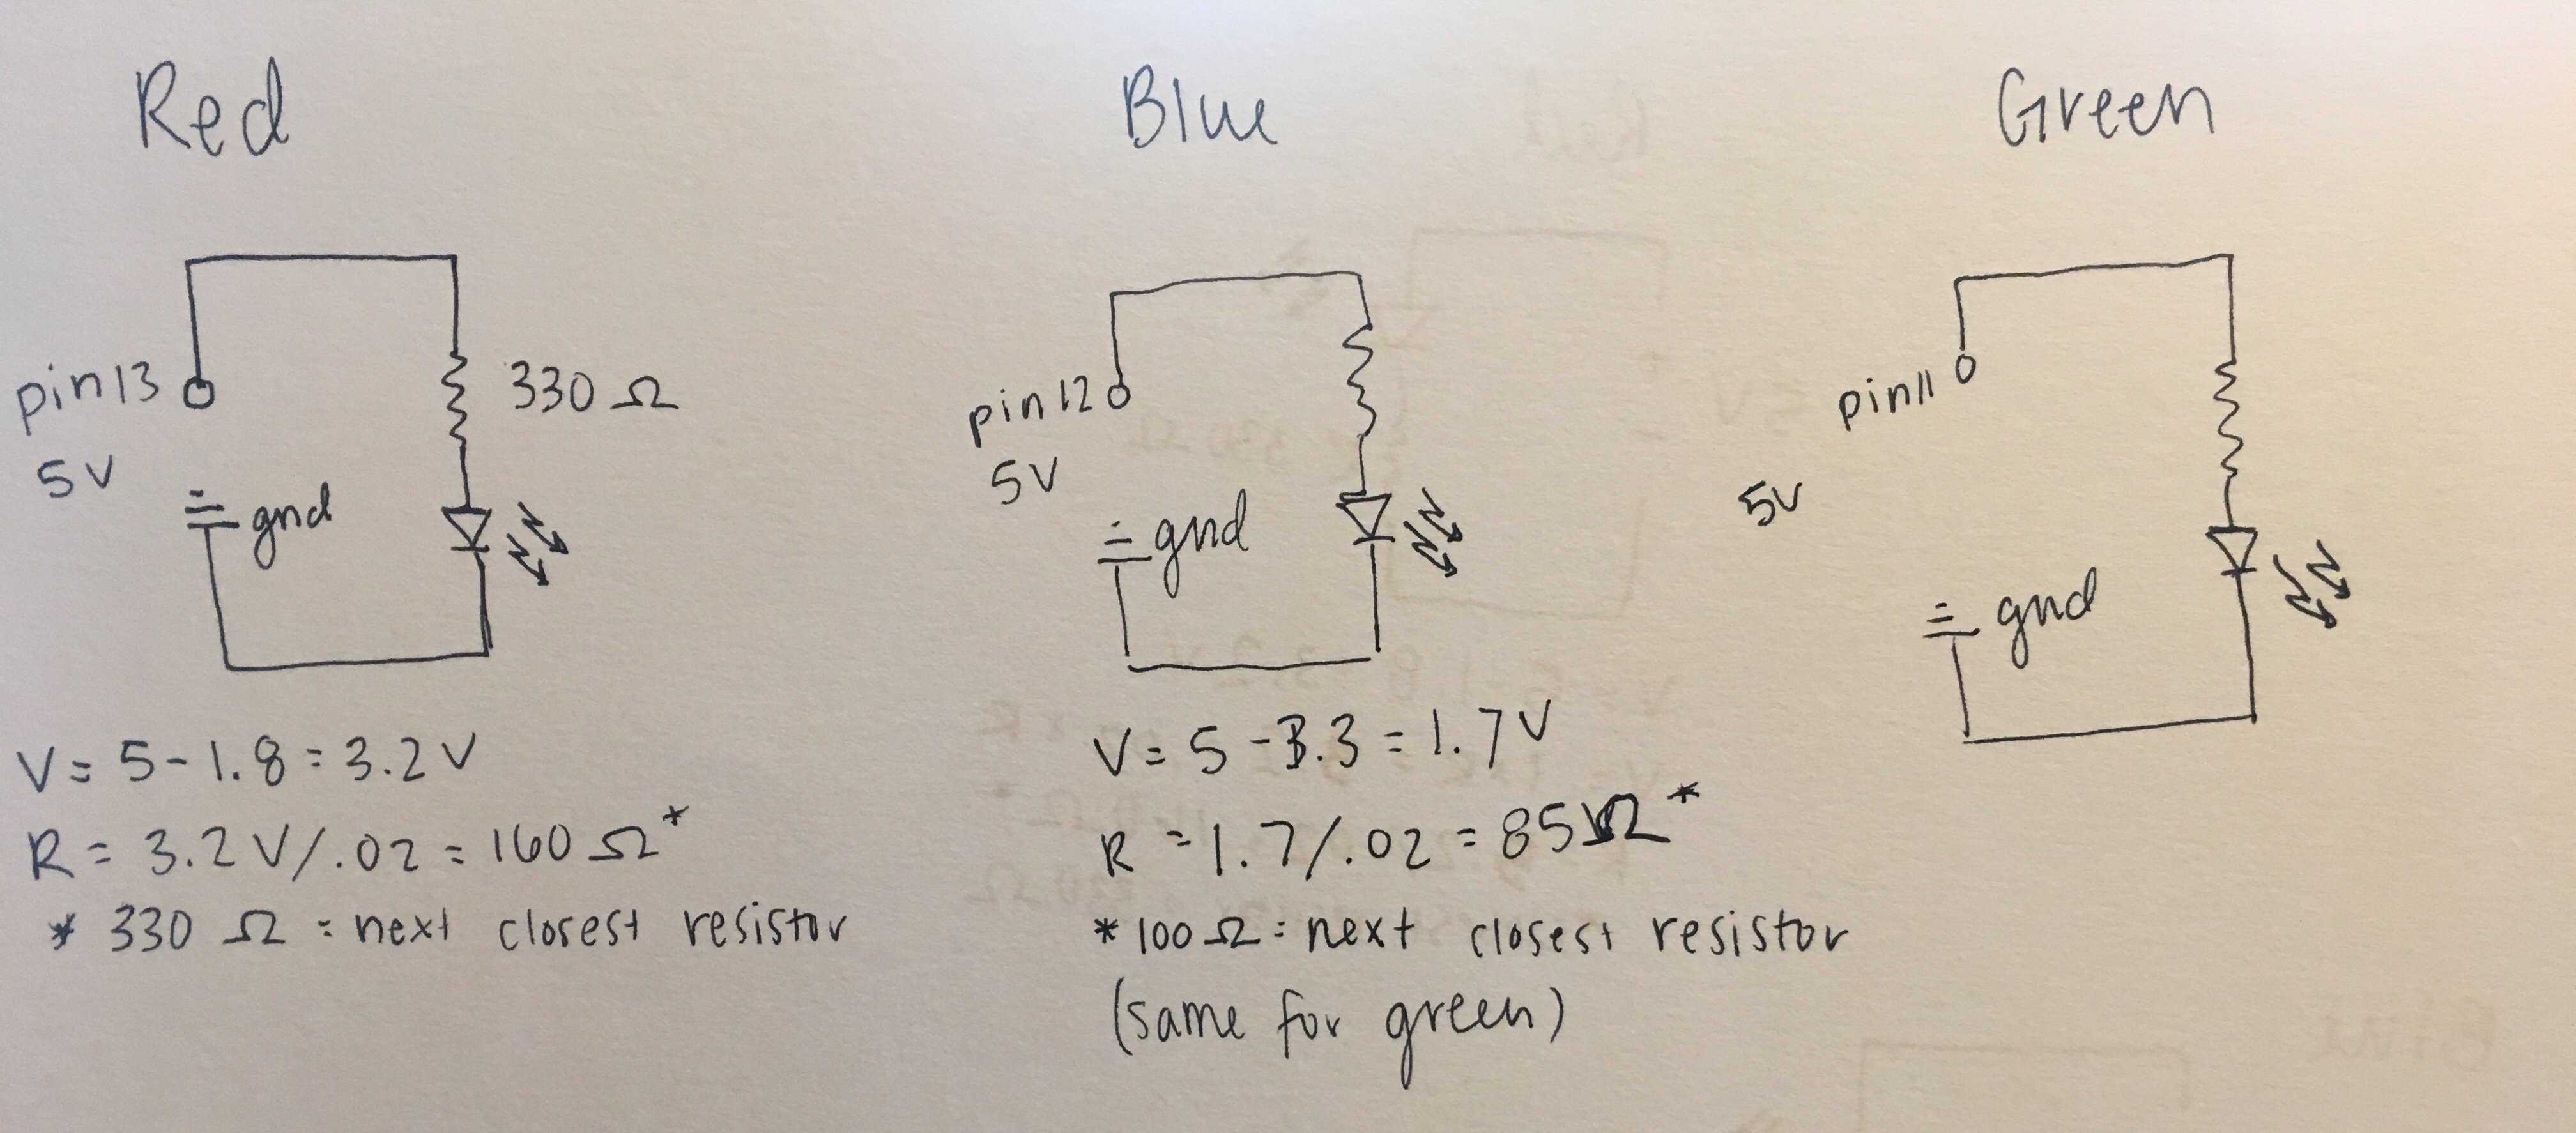 Red
pin 13
5V
gnd
330 Ω
V = 5 - 1.8 = 3.2 V
R = 3.2 V/.02 = 160 Ω*
* 330 Ω = next closest resistor
Blue
pin 12
5V
gnd
V = 5 - 3.3 = 1.7 V
R = 1.7/.02 = 85 Ω*
* 100 Ω = next closest resistor
(same for green)
Green
pin 11
5V
gnd